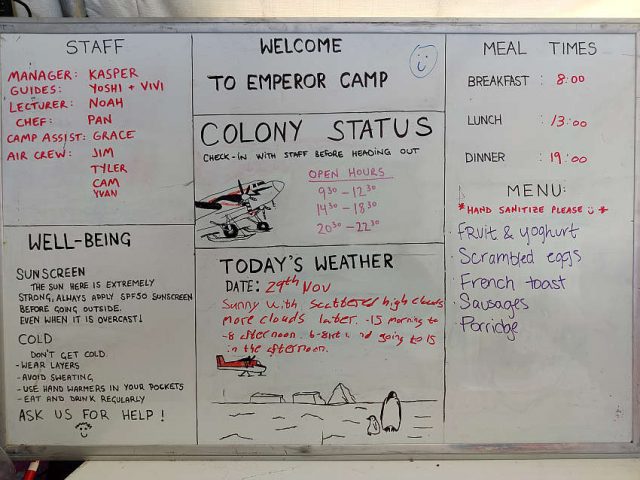 STAFF
MANAGER: KASPER
GUIDES: YOSHI + VIVI
LECTURER: NOAH
CHEF: PAN
CAMP ASSIST: GRACE
AIR CREW: JIM
TYLER
CAM
YVAN
WELL-BEING
SUNSCREEN
THE SUN HERE IS EXTREMELY
STRONG, ALWAYS APPLY SPF50 SUNSCREEN
BEFORE GOING OUTSIDE.
EVEN WHEN IT IS OVERCAST!
COLD
DON'T GET COLD.
- WEAR LAYERS
- AVOID SWEATING,
- USE HAND WARMERS IN YOUR POCKETS
- EAT AND DRINK REGULARLY
ASK US FOR HELP!
WELCOME
TO EMPEROR CAMP
COLONY STATUS
CHECK-IN WITH STAFF BEFORE HEADING OUT
OPEN HOURS
930 - 1230
1430 - 1830
2030 - 2230
TODAY'S WEATHER
DATE: 29th Nov
Sunny with scattered high clouds
more clouds later. -15 morning to
-8 afternoon. 6-8kts and going to 15
in the afternoon.
MEAL TIMES
BREAKFAST : 8:00
LUNCH : 13:00
DINNER : 19:00
MENU:
*HAND SANITIZE PLEASE *
Fruit & yoghurt
Scrambled eggs
French toast
Sausages
Porridge